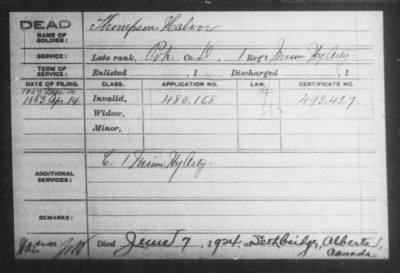 DEAD
NAME OF SOLDIER:
Thompson Halvor
SERVICE:
Late rank, Pvt. Co. D, 1 Reg't Minn Hy Arty.
TERM OF SERVICE:
Enlisted , 1 Discharged , 1
DATE OF FILING. CLASS. APPLICATION NO. LAW. CERTIFICATE NO.
1883 Apr. 14 Invalid, 480.168 493.427
Widow,
Minor,
ADDITIONAL SERVICES:
C. 1 Minn Hy Arty
Died June 7, 1924, at Lethbridge, Alberta,
Canada